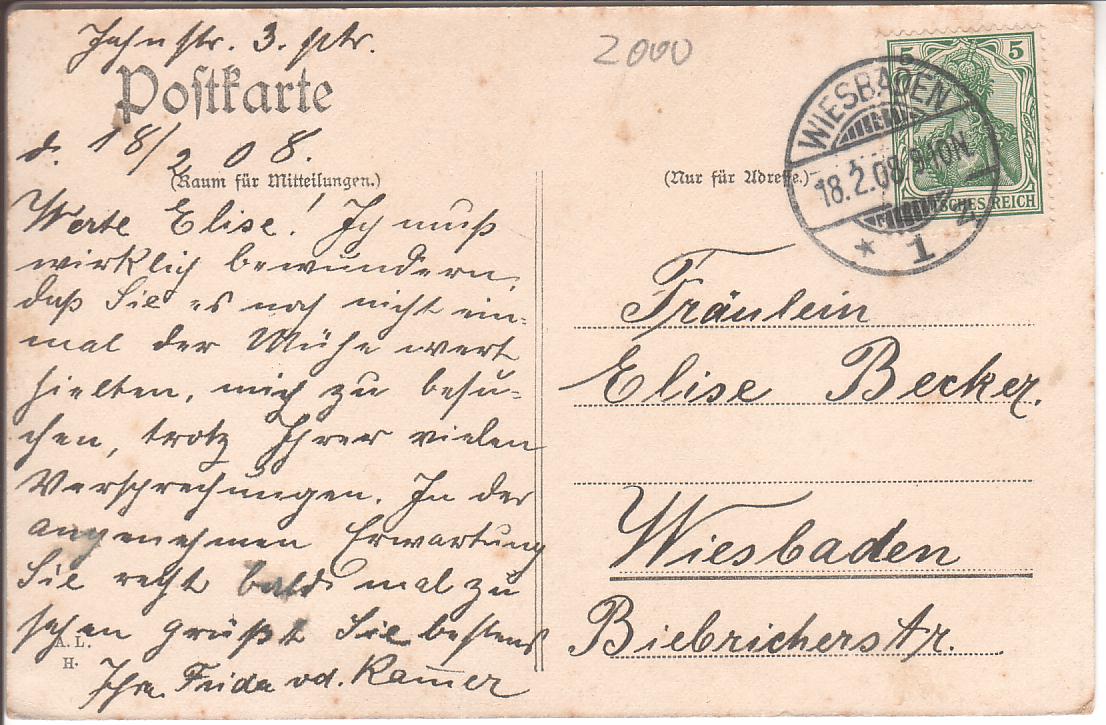 Jahnstr. 3. ptr.
2000
Postkarte
d. 18/2 08.
(Raum für Mitteilungen.)
Werte Elise! Ich muß
wirklich bewundern,
daß Sie es noch nicht ein-
mal der Mühe wert
hielten, mich zu besu-
chen, trotz Ihrer vielen
Versprechungen. In der
angenehmen Erwartung
Sie recht bald mal zu
sehen grüßt Sie bestens
Ihre Frida
A. L.
H.
(Nur für Adresse.)
5 5
DEUTSCHES REICH
WIESBADEN
18.2.08. 9-10N.
* 1
Fräulein
Elise Becker.
Wiesbaden
Biebricherstr.